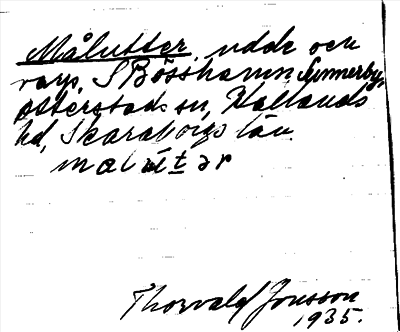 Målutter, udde och
varp, S Bösshamn, Sunnerby,
Otterstads sn, Kållands
hd, Skaraborgs län.
målu̇tər
Thorvald Jonsson
1935.